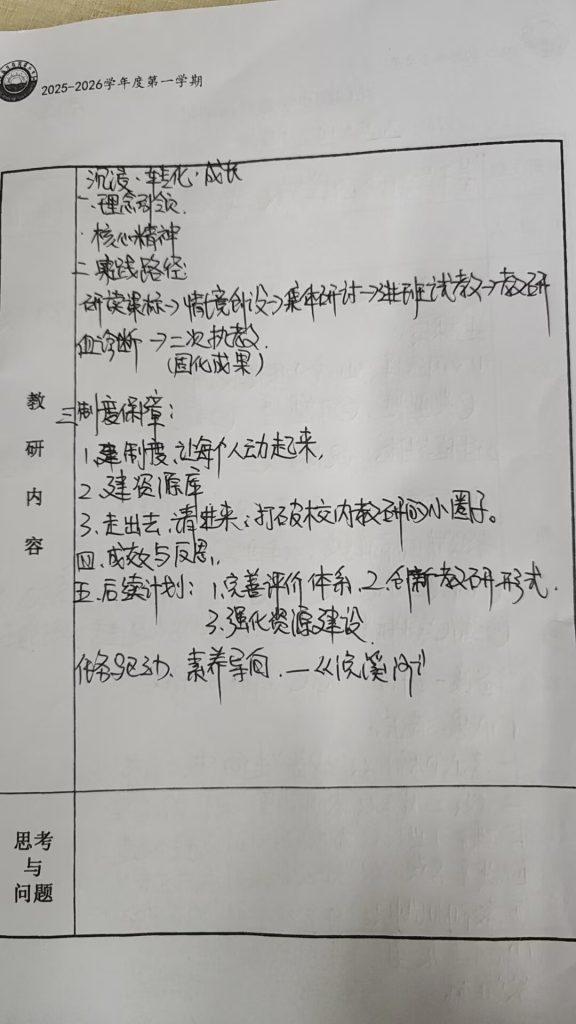 2025-2026学年度第一学期
沉浸·转化·成长
一、理念引领.
·核心精神
二实践路径
研读课标→情境创设→集体研讨→进班试教→教研
诊断→二次执教.
(固化成果)
教研内容
三制度保障:
1.建制度,让每个人动起来,
2.建资源库
3.走出去、请进来:打破校内教研的小圈子。
四.成效与反思,
五.后续计划:1.完善评价体系.2.创新教研形式.
3.强化资源建设.
任务驱动、素养导向.—《浣溪沙》
思考
与
问题